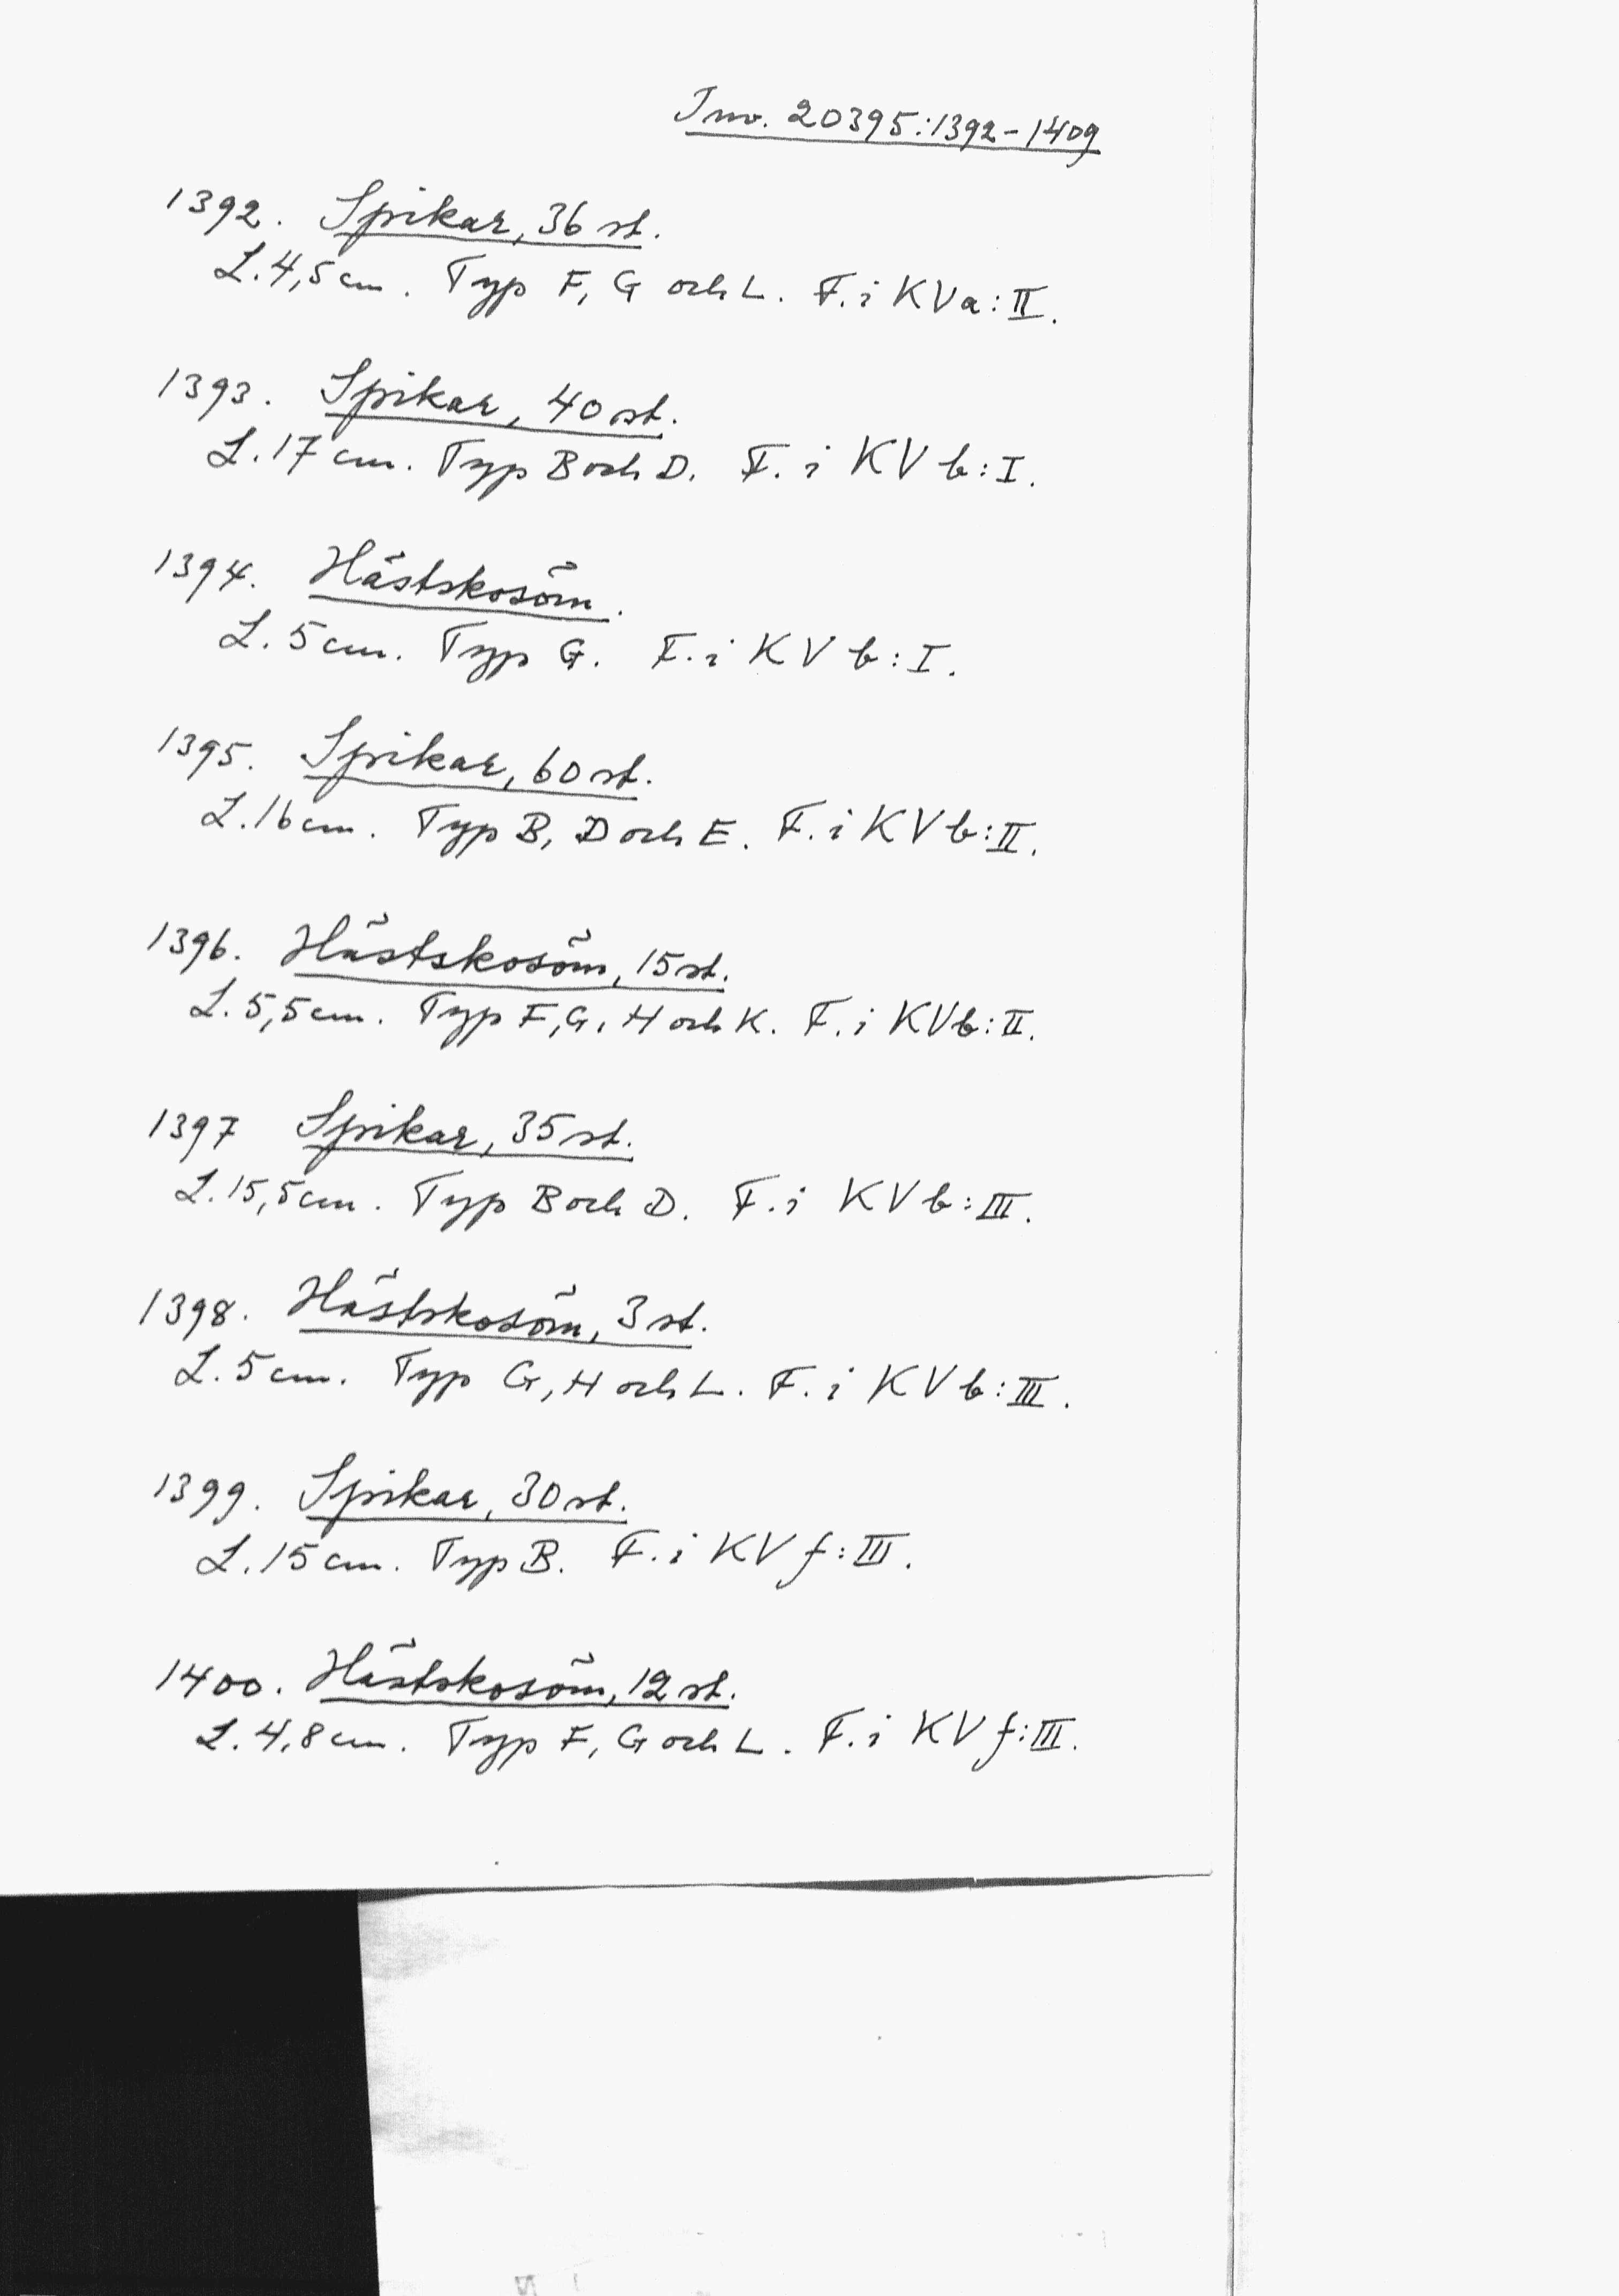 Inv. 20395:1392-1409
1392. Spikar, 36 st.
L. 4,5 cm. Typ F, G och L. F. i KVa:II.
1393. Spikar, 40 st.
L. 17 cm. Typ B och D. F. i KV b:I.
1394. Hästskosöm.
L. 5 cm. Typ G. F. i KV b:I.
1395. Spikar, 60 st.
L. 16 cm. Typ B, D och E. F. i KV b:II.
1396. Hästskosöm, 15 st.
L. 5,5 cm. Typ F, G, H och K. F. i KVb:II.
1397 Spikar, 35 st.
L. 15,5 cm. Typ B och D. F. i KV b:III.
1398. Hästskosöm, 3 st.
L. 5 cm. Typ G, H och L. F. i KV b:III.
1399. Spikar, 30 st.
L. 15 cm. Typ B. F. i KV f:III.
1400. Hästskosöm, 12 st.
L. 4,8 cm. Typ F, G och L. F. i KV f:III.